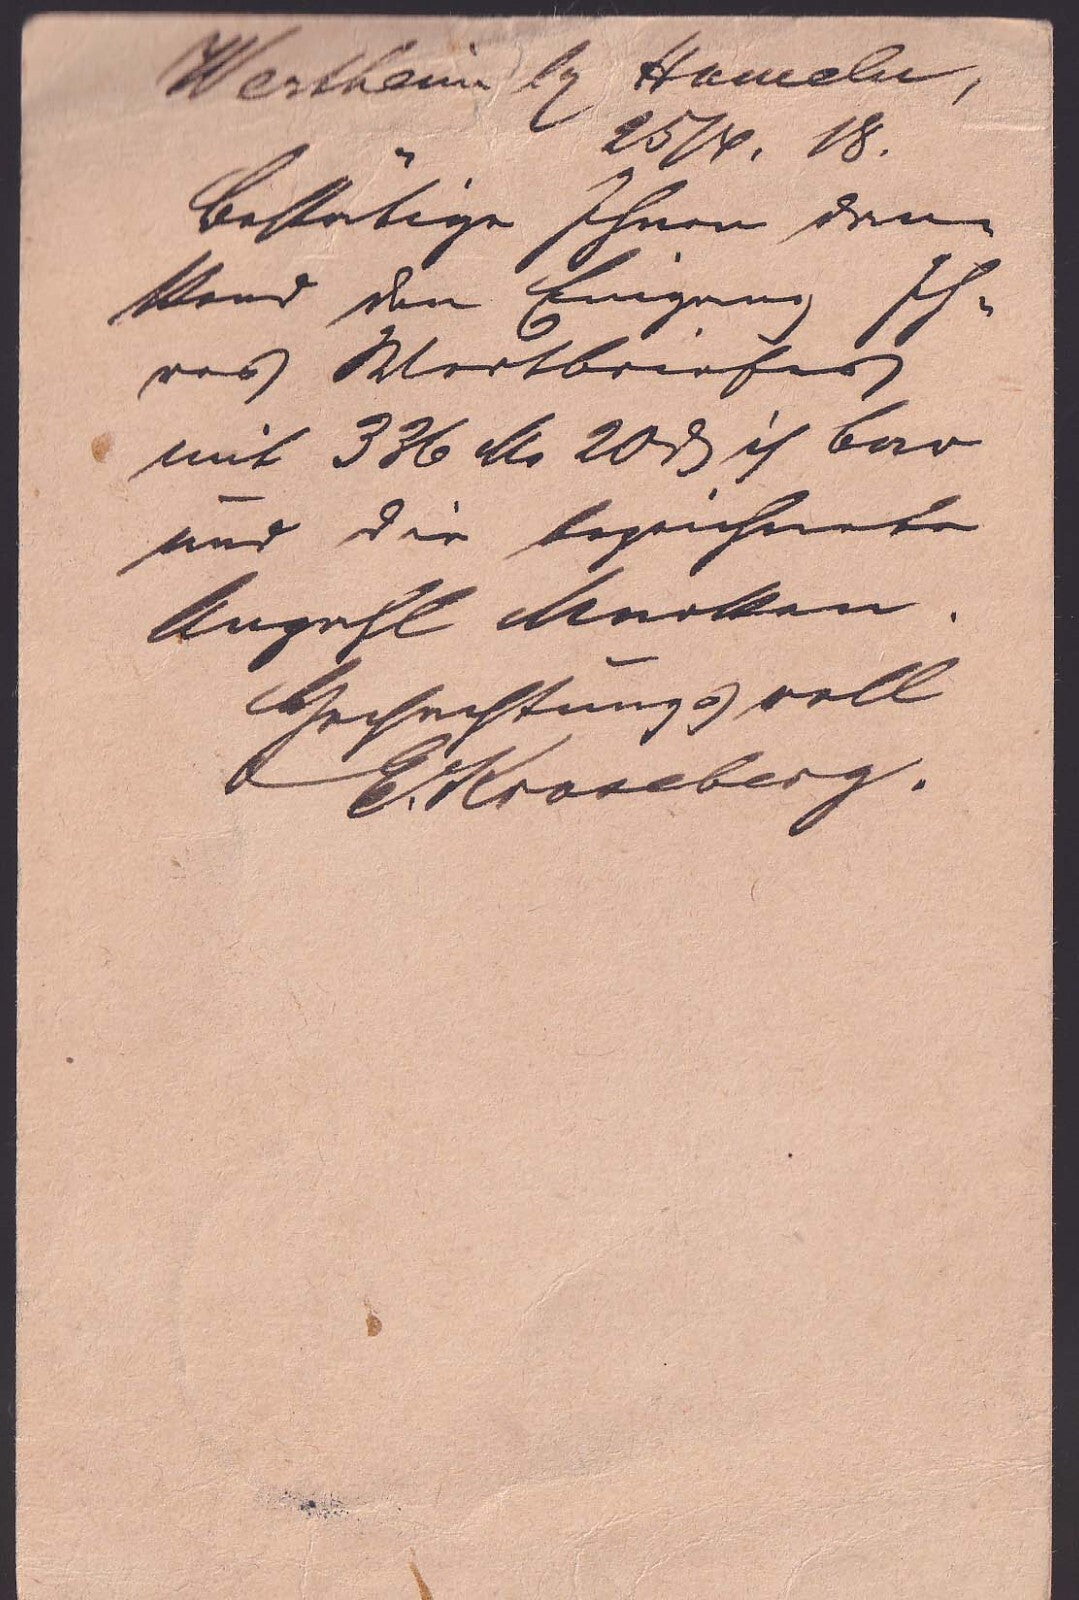 Wertheim by Hameln,
25/4. 18.
Bestätige Ihnen dan-
kend den Eingang Ih-
res Wertbriefes
mit 336 M. 20 ₰ in bar
und die bezeichnete
Anzahl Marken.
Hochachtungsvoll
E. Kraseberg.